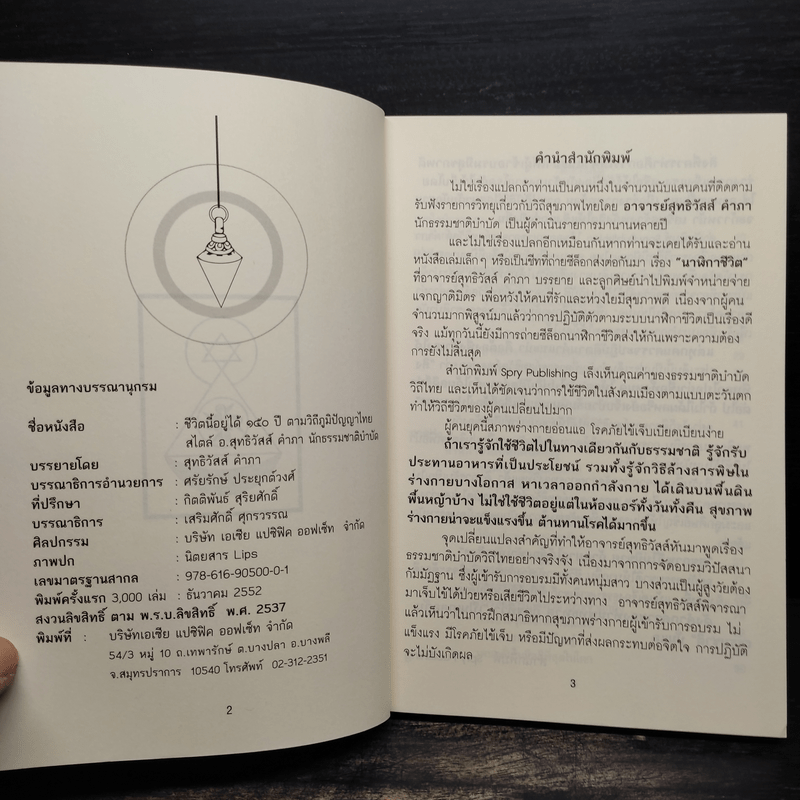 ข้อมูลทางบรรณานุกรม
ชื่อหนังสือ : ชีวิตนี้อยู่ได้ ๑๕๐ ปี ตามวิถีภูมิปัญญาไทย
สไตล์ อ.สุทธิวัสส์ คำภา นักธรรมชาติบำบัด
บรรยายโดย : สุทธิวัสส์ คำภา
บรรณาธิการอำนวยการ : ศรัยรักษ์ ประยุกต์วงศ์
ที่ปรึกษา : กิตติพันธ์ สุริยศักดิ์
บรรณาธิการ : เสริมศักดิ์ ศุกรวรรณ
ศิลปกรรม : บริษัท เอเชีย แปซิฟิค ออฟเซ็ท จำกัด
ภาพปก : นิตยสาร Lips
เลขมาตรฐานสากล : 978-616-90500-0-1
พิมพ์ครั้งแรก 3,000 เล่ม : ธันวาคม 2552
สงวนลิขสิทธิ์ ตาม พ.ร.บ.ลิขสิทธิ์ พ.ศ. 2537
พิมพ์ที่ : บริษัทเอเชีย แปซิฟิค ออฟเซ็ท จำกัด
54/3 หมู่ 10 ถ.เทพารักษ์ ต.บางปลา อ.บางพลี
จ.สมุทรปราการ 10540 โทรศัพท์ 02-312-2351
2
คำนำสำนักพิมพ์
ไม่ใช่เรื่องแปลกถ้าท่านเป็นคนหนึ่งในจำนวนนับแสนคนที่ติดตาม
รับฟังรายการวิทยุเกี่ยวกับวิถีสุขภาพไทยโดย อาจารย์สุทธิวัสส์ คำภา
นักธรรมชาติบำบัด เป็นผู้ดำเนินรายการมานานหลายปี
และไม่ใช่เรื่องแปลกอีกเหมือนกันหากท่านจะเคยได้รับและอ่าน
หนังสือเล่มเล็กๆ หรือเป็นชีทที่ถ่ายซีล็อกส่งต่อกันมา เรื่อง "นาฬิกาชีวิต"
ที่อาจารย์สุทธิวัสส์ คำภา บรรยาย และลูกศิษย์นำไปพิมพ์จำหน่ายจ่าย
แจกญาติมิตร เพื่อหวังให้คนที่รักและห่วงใยมีสุขภาพดี เนื่องจากผู้คน
จำนวนมากพิสูจน์มาแล้วว่าการปฏิบัติตัวตามระบบนาฬิกาชีวิตเป็นเรื่องดี
จริง แม้ทุกวันนี้ยังมีการถ่ายซีล็อกนาฬิกาชีวิตส่งให้กันเพราะความต้อง
การยังไม่สิ้นสุด
สำนักพิมพ์ Spry Publishing เล็งเห็นคุณค่าของธรรมชาติบำบัด
วิถีไทย และเห็นได้ชัดเจนว่าการใช้ชีวิตในสังคมเมืองตามแบบตะวันตก
ทำให้วิถีชีวิตของผู้คนเปลี่ยนไปมาก
ผู้คนยุคนี้สภาพร่างกายอ่อนแอ โรคภัยไข้เจ็บเบียดเบียนง่าย
ถ้าเรารู้จักใช้ชีวิตไปในทางเดียวกันกับธรรมชาติ รู้จักรับ
ประทานอาหารที่เป็นประโยชน์ รวมทั้งรู้จักวิธีล้างสารพิษใน
ร่างกายบางโอกาส หาเวลาออกกำลังกาย ได้เดินบนพื้นดิน
พื้นหญ้าบ้าง ไม่ใช่ใช้ชีวิตอยู่แต่ในห้องแอร์ทั้งวันทั้งคืน สุขภาพ
ร่างกายน่าจะแข็งแรงขึ้น ต้านทานโรคได้มากขึ้น
จุดเปลี่ยนแปลงสำคัญที่ทำให้อาจารย์สุทธิวัสส์หันมาพูดเรื่อง
ธรรมชาติบำบัดวิถีไทยอย่างจริงจัง เนื่องมาจากการจัดอบรมวิปัสสนา
กัมมัฏฐาน ซึ่งผู้เข้ารับการอบรมมีทั้งคนหนุ่มสาว บางส่วนเป็นผู้สูงวัยต้อง
มาเจ็บไข้ได้ป่วยหรือเสียชีวิตไประหว่างทาง อาจารย์สุทธิวัสส์พิจารณา
แล้วเห็นว่าในการฝึกสมาธิหากสุขภาพร่างกายผู้เข้ารับการอบรม ไม่
แข็งแรง มีโรคภัยไข้เจ็บ หรือมีปัญหาที่ส่งผลกระทบต่อจิตใจ การปฏิบัติ
จะไม่บังเกิดผล
3